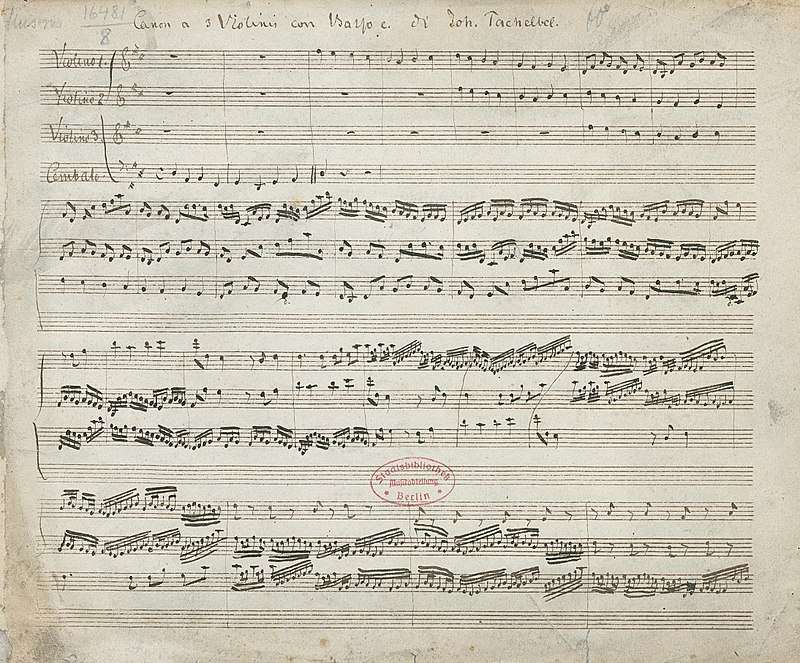 16481
8
Canon a 3 Violinis con Basso c. di Joh. Pachelbel.
Violino 1.
Violino 2
Violino 3
Cembalo.
Staatsbibliothek
Musikabteilung
Berlin